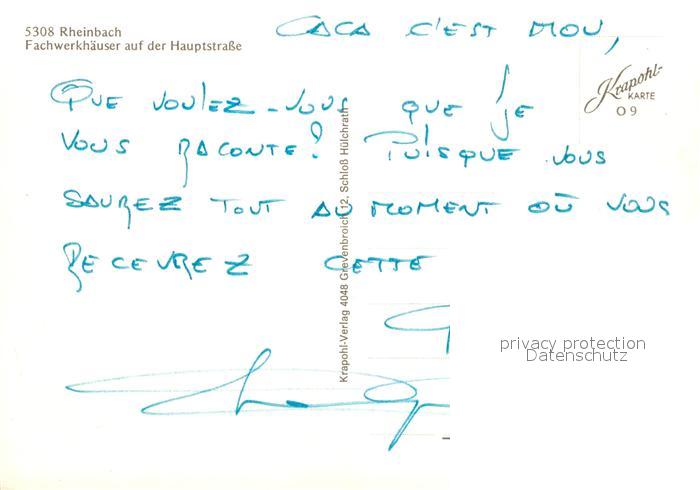 5308 Rheinbach
Fachwerkhäuser auf der Hauptstraße
CACA C'EST MOU,
Krapohl-
KARTE
O 9
QUE VOULEZ-VOUS QUE JE
VOUS RACONTE? PUISQUE VOUS
SAUREZ TOUT AU MOMENT OÙ VOUS
RECEVREZ CETTE
Krapohl-Verlag 4048 Grevenbroich 12, Schloß Hülchrath
privacy protection
Datenschutz